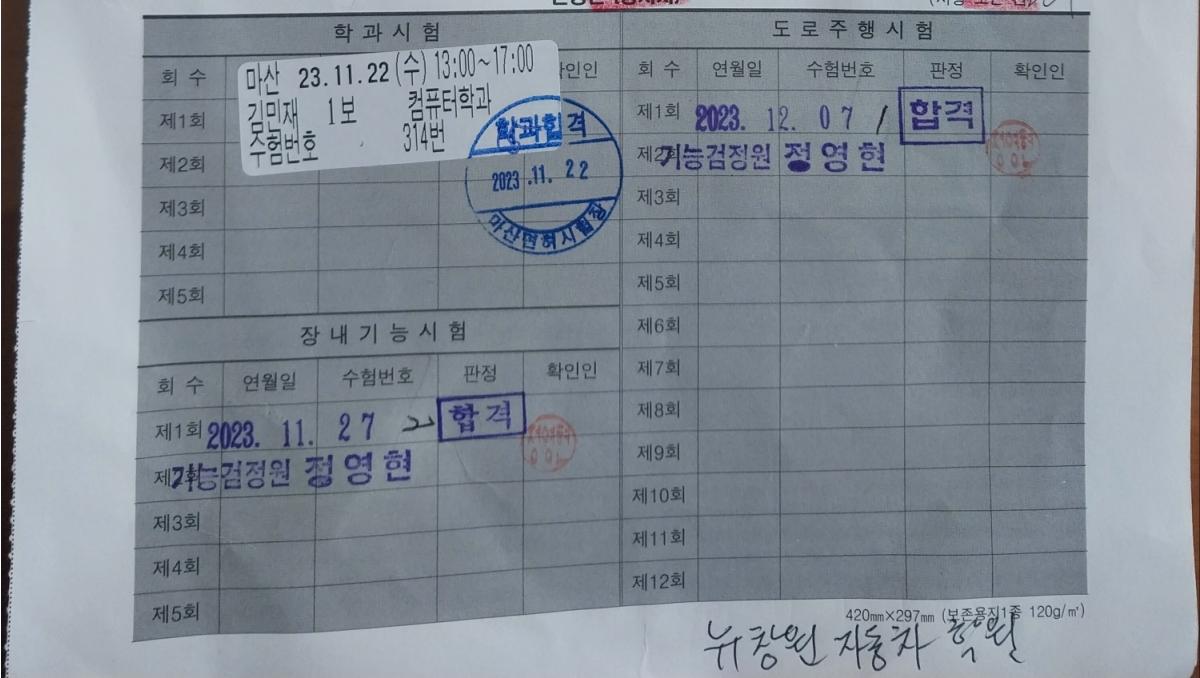 학과시험
회 수
확인인
마산 23.11.22(수) 13:00~17:00
김민재 1보 컴퓨터학과
수험번호 314번
제1회
제2회
제3회
제4회
제5회
학과합격
2023.11.22
마산면허시험장
장내기능시험
회 수 연월일 수험번호 판정 확인인
제1회 2023. 11. 27 합격
기능검정원 정영현
제3회
제4회
제5회
도로주행시험
회 수 연월일 수험번호 판정 확인인
제1회 2023. 12. 07 / 합격
제2회 기능검정원 정영현
제3회
제4회
제5회
제6회
제7회
제8회
제9회
제10회
제11회
제12회
420㎜×297㎜ (보존용지1종 120g/㎡)
뉴창원 자동차 학원